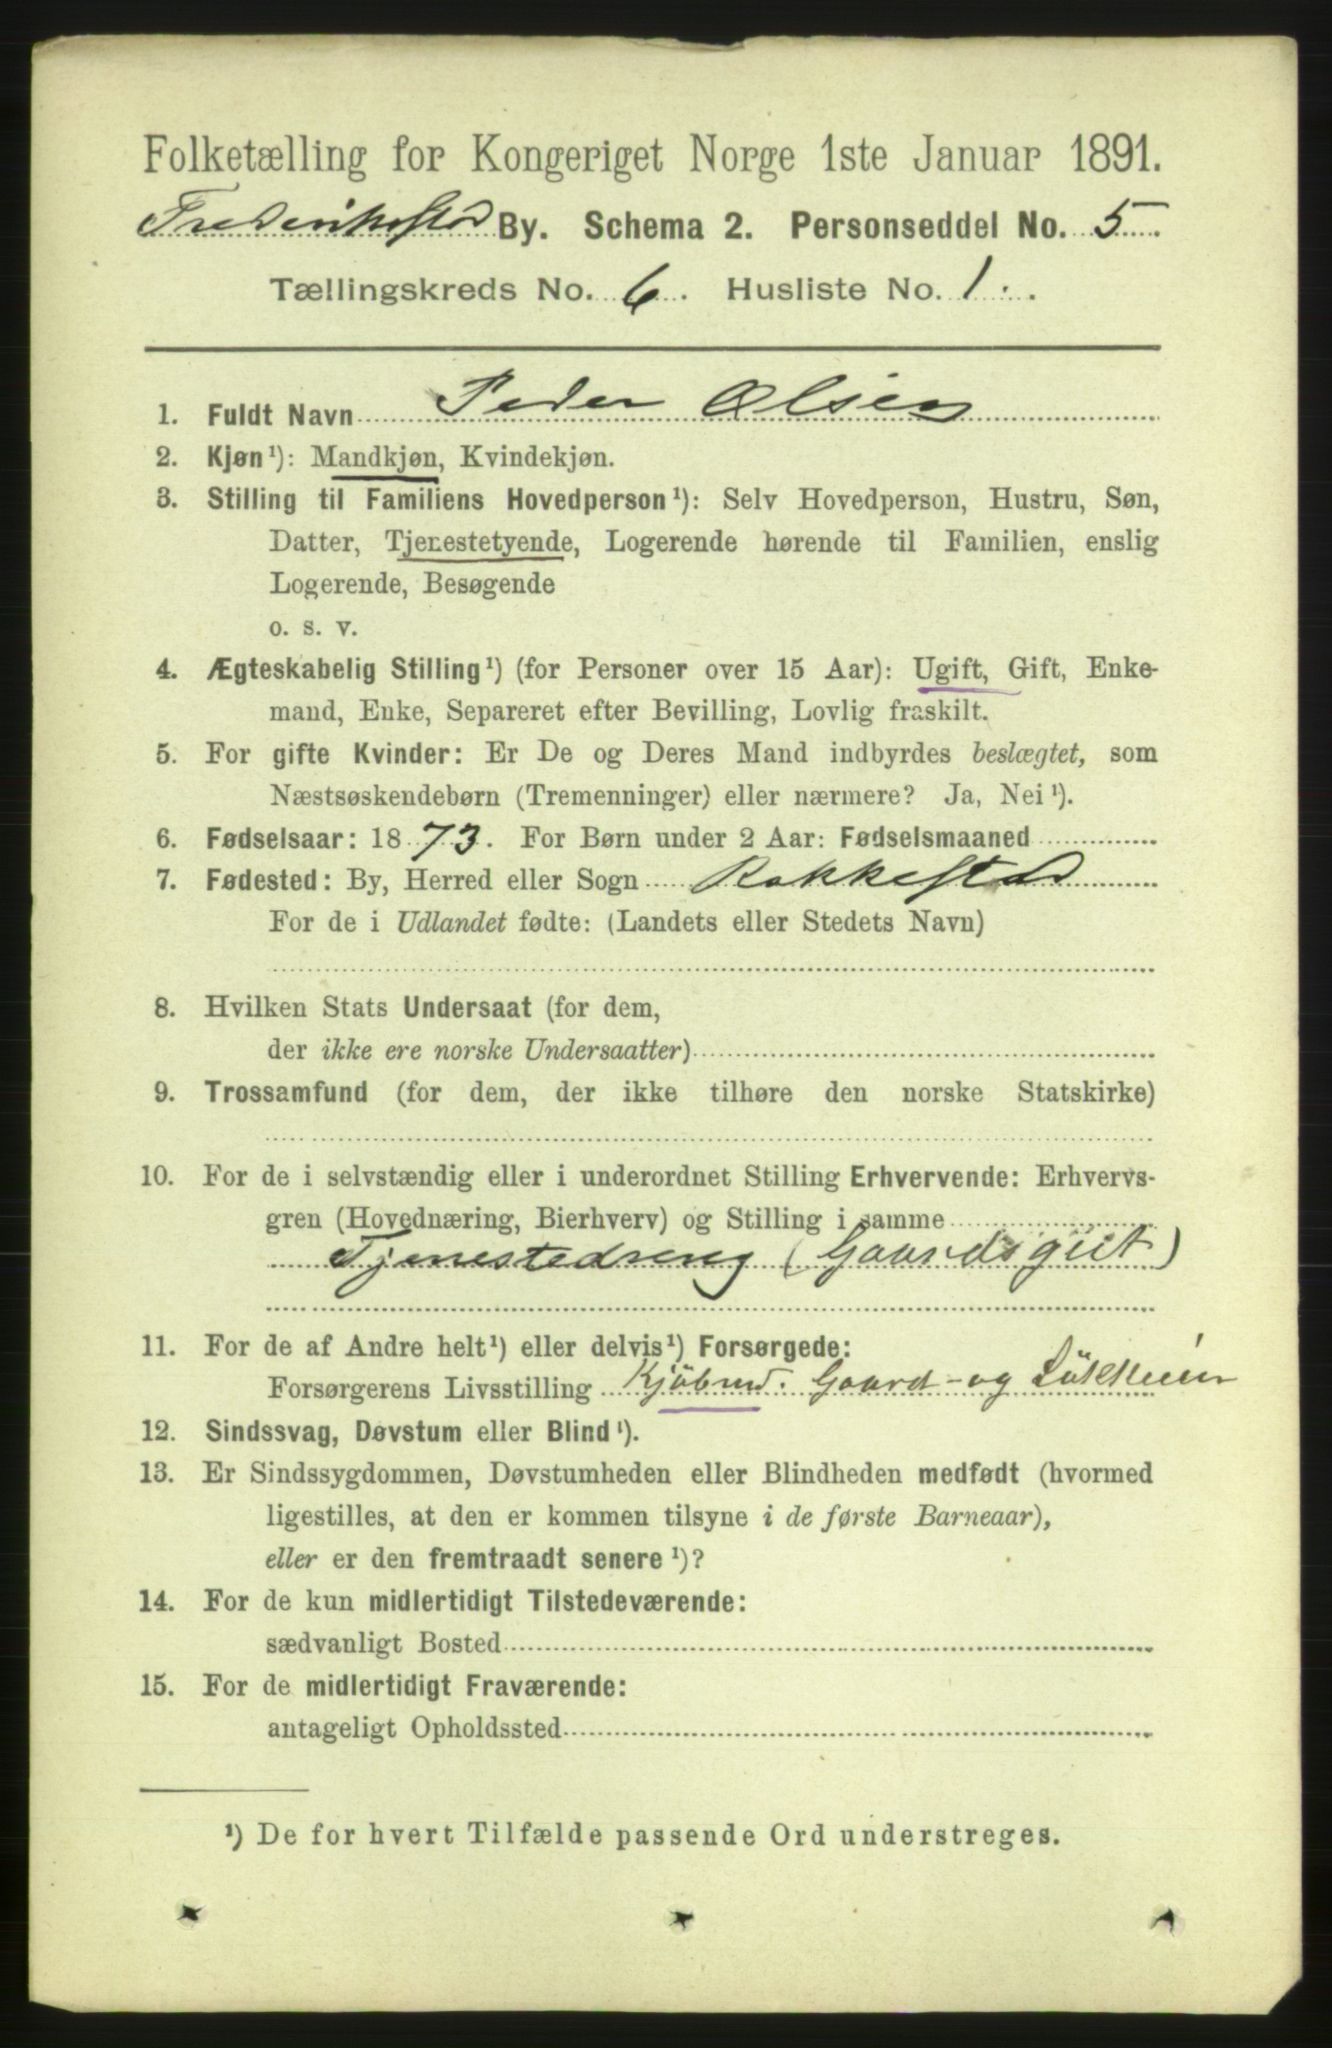 Folketælling for Kongeriget Norge 1ste Januar 1891.
Frederikstad By. Schema 2. Personseddel No. 5.
Tællingskreds No. 6. Husliste No. 1.
1. Fuldt Navn Peder Olsen
2. Kjøn¹): Mandkjøn, Kvindekjøn.
3. Stilling til Familiens Hovedperson¹): Selv Hovedperson, Hustru, Søn,
Datter, Tjenestetyende, Logerende hørende til Familien, enslig
Logerende, Besøgende
o. s. v.
4. Ægteskabelig Stilling¹) (for Personer over 15 Aar): Ugift, Gift, Enke-
mand, Enke, Separeret efter Bevilling, Lovlig fraskilt.
5. For gifte Kvinder: Er De og Deres Mand indbyrdes beslægtet, som
Næstsøskendebørn (Tremenninger) eller nærmere? Ja, Nei¹).
6. Fødselsaar: 1873. For Børn under 2 Aar: Fødselsmaaned
7. Fødested: By, Herred eller Sogn Rakkestad
For de i Udlandet fødte: (Landets eller Stedets Navn)
8. Hvilken Stats Undersaat (for dem,
der ikke ere norske Undersaatter)
9. Trossamfund (for dem, der ikke tilhøre den norske Statskirke)
10. For de i selvstændig eller i underordnet Stilling Erhvervende: Erhvervs-
gren (Hovednæring, Bierhverv) og Stilling i samme
Tjenestedreng (Gaardsgut)
11. For de af Andre helt¹) eller delvis¹) Forsørgede:
Forsørgerens Livsstilling Kjöbmd. Gaard- og
12. Sindssvag, Døvstum eller Blind¹).
13. Er Sindssygdommen, Døvstumheden eller Blindheden medfødt (hvormed
ligestilles, at den er kommen tilsyne i de første Barneaar),
eller er den fremtraadt senere¹)?
14. For de kun midlertidigt Tilstedeværende:
sædvanligt Bosted
15. For de midlertidigt Fraværende:
antageligt Opholdssted
¹) De for hvert Tilfælde passende Ord understreges.